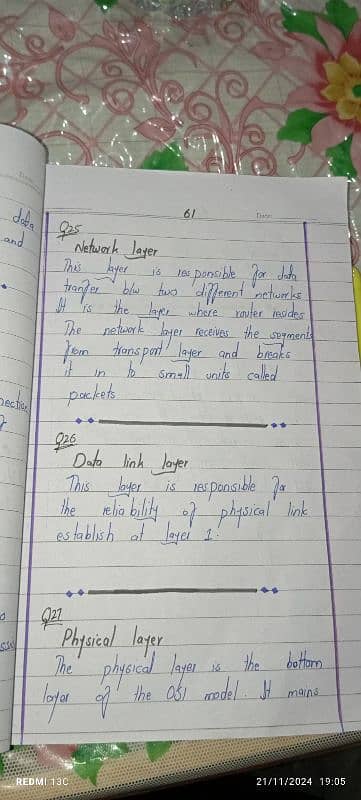 data
and
nection
61
Date:
Q25
Network layer
This layer is responsible for data
tranfer b/w two different networks
It is the layer where router resides
The network layer receives the segments
from transport layer and breaks
it in to small units called
packets
Q26
Data link layer
This layer is responsible for
the reliability of physical link
establish at layer 1.
Q27
Physical layer
The physical layer is the bottom
layer of the OSI model. It mains
REDMI 13C
21/11/2024 19:05